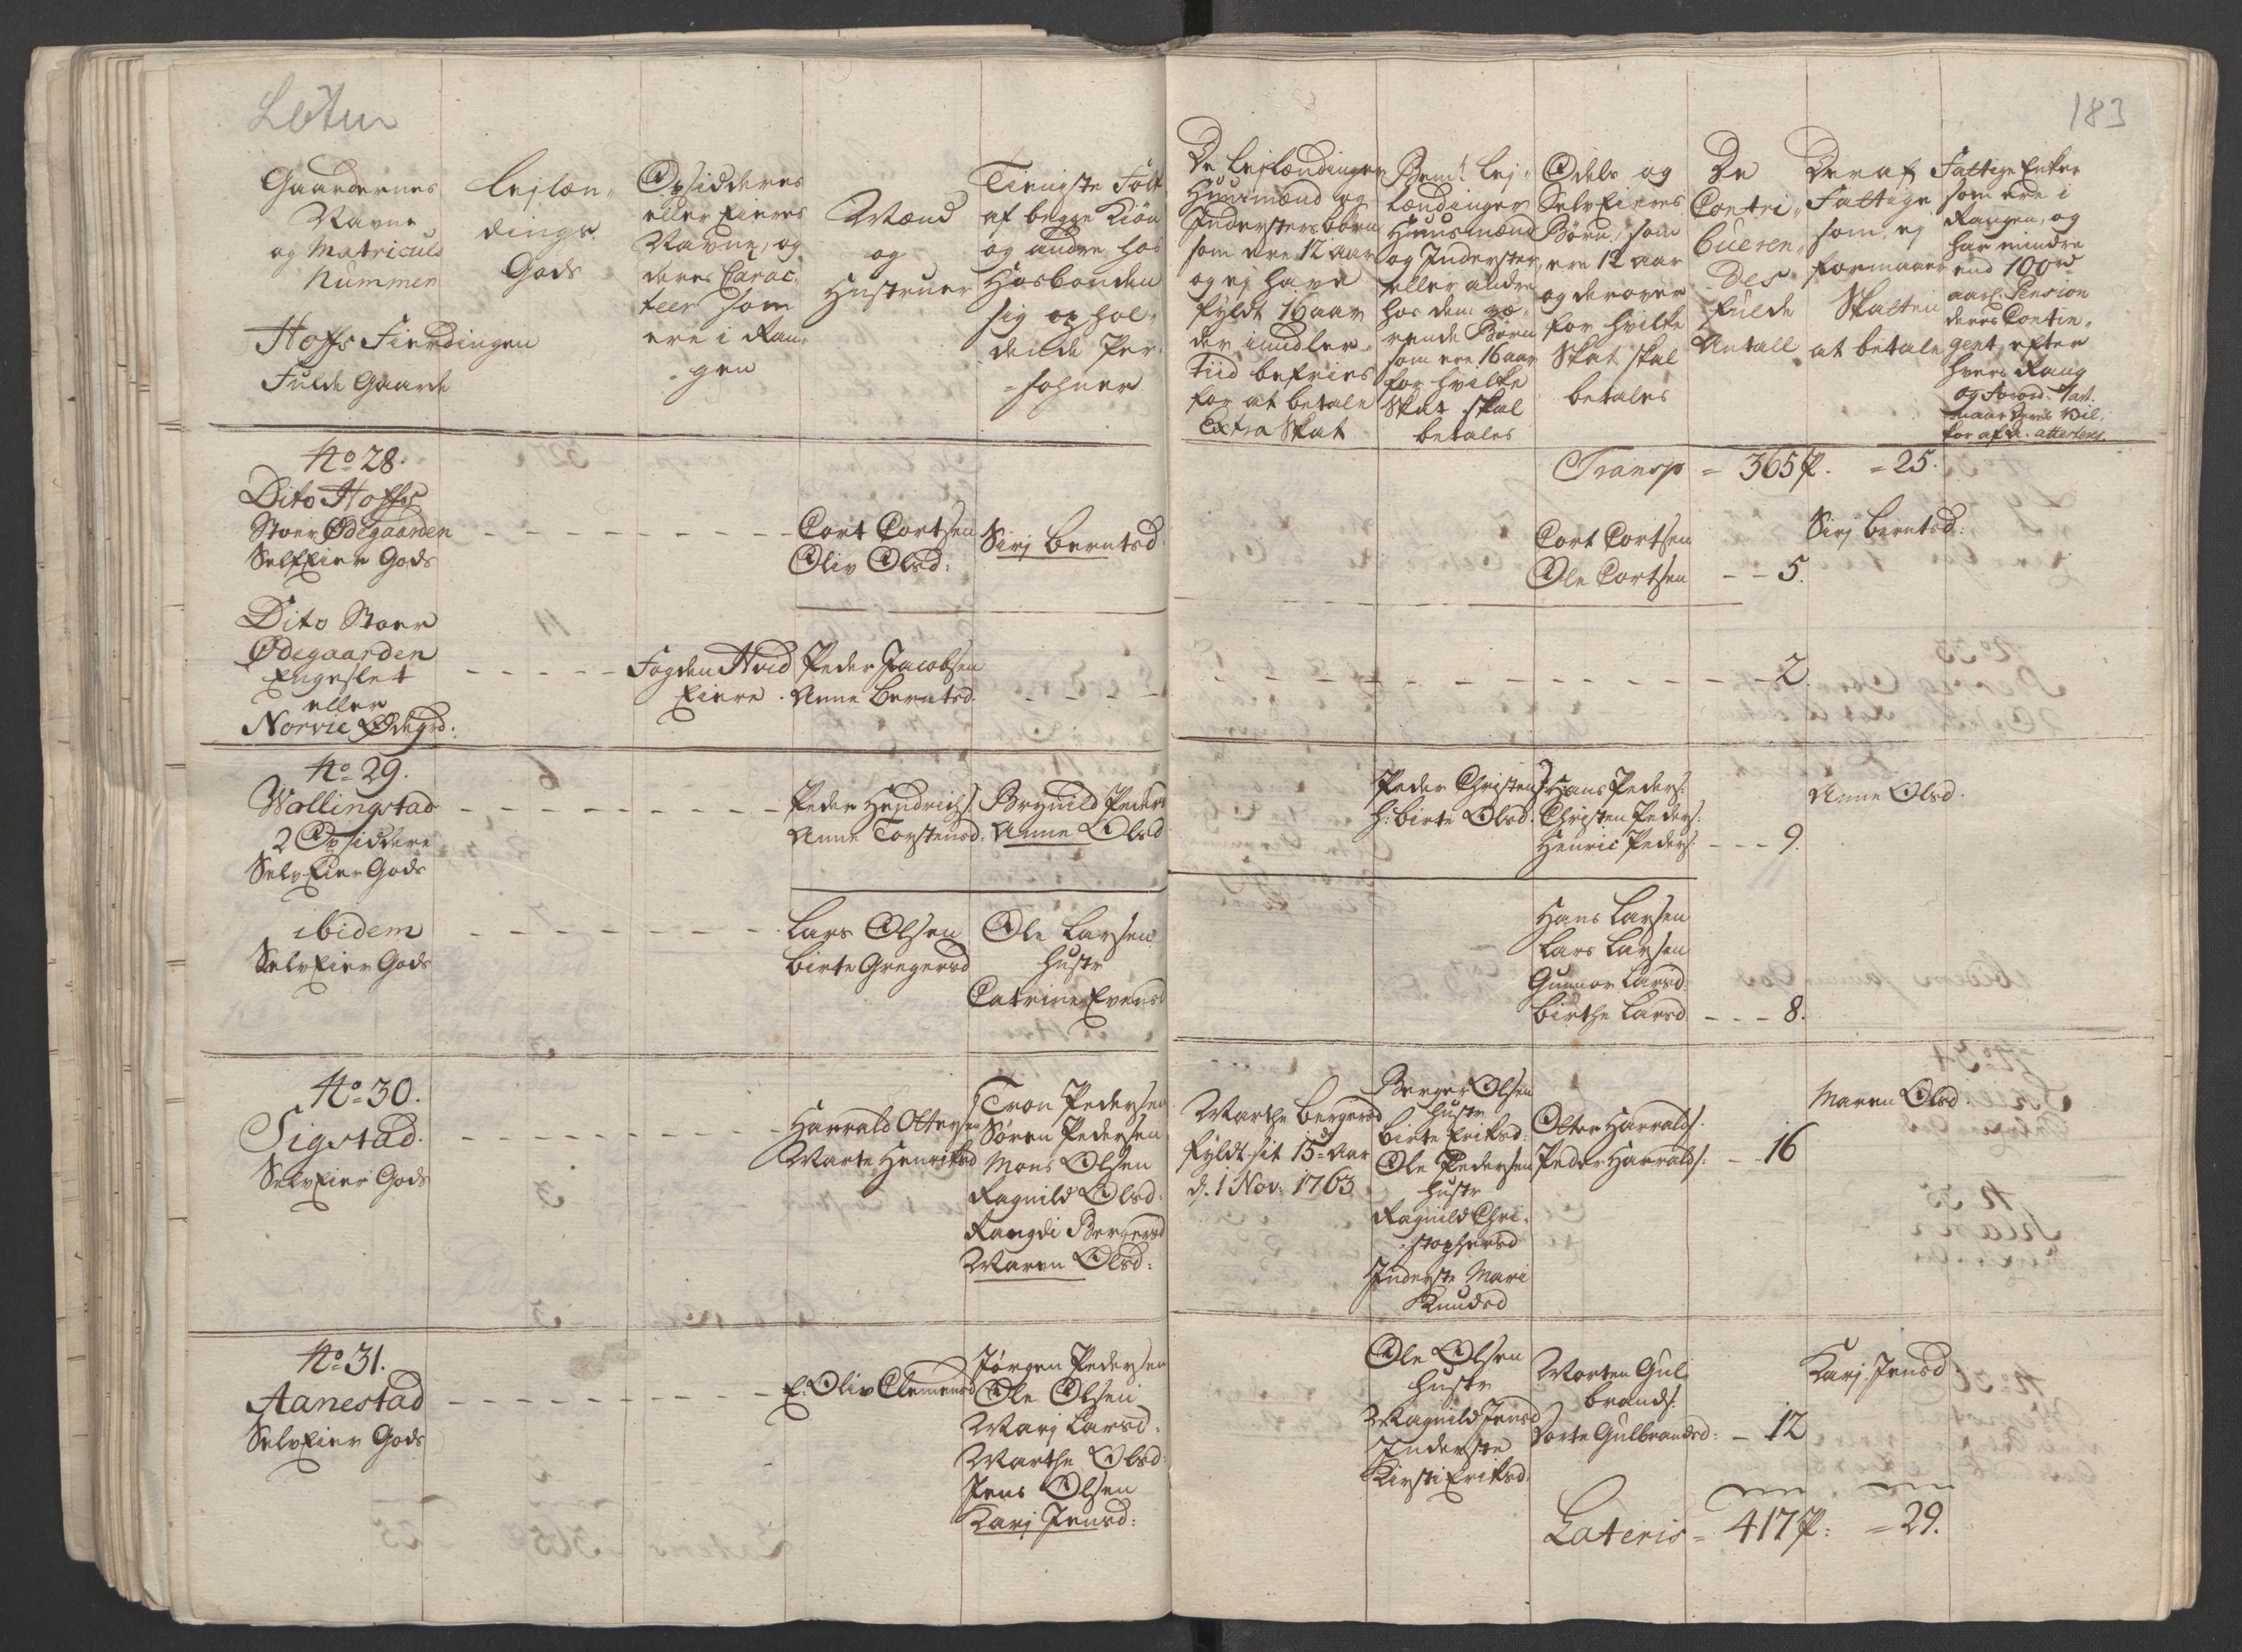 Løten
183
Gaardernes
Navne
og Matriculs
Nummer
Hoffs Fierdingen
Fulde Gaarde
Lejlæn-
dings
Gods
Opsiddernes
eller Eiernes
Navne, og
deres Carac-
teer som
ere i Ran-
gen
Mænd
og
Hustruer
Tieniste Folk
af begge Kiøn
og andre hos
Hosbonden
sig op hol-
dende Per-
sohner
De Lejlændinger
Huusmænd og
Inderstersbørn
som ere 12 aar
og ej have
fyldt 16 aar
der imidler-
tiid befries
for at betale
Extra Skat
Bemte Lej-
lændinger
Huusmænd
og Inderster
eller andre
hos dem væ-
rende Børn
som ere 16 aar
for hvilke
Skat skal
betales
Odels og
SelvEieres
Børn, som
ere 12 aar
og derover
for hvilke
Skat skal
betales
De
Contri-
buerendes
fulde
Antall
Deraf
Fattige
som ej
formaaer
Skatten
at betale
Fattige Enker
som ere i
Rangen, og
har mindre
end 100 rd
aarl. Pension
deres Contin-
gent, efter
hvers Rang
Transp = 365 p. = 25.
No 28.
Dito Hoffs
Stoer Ødegaarden
SelfEier Gods
Cort Cortsen
Oliv Olsd:
Sirj Berntsd
Cort Cortsen
Ole Cortsen - - 5.
Sirj Berntsd:
Dito Stoer
Ødegaarden
Engeslet
eller
Norvie Ødegrd:
Fogden Hvid
Eiere.
Peder Jacobsen
Anne Berntsd.
2.
No 29.
Wollingstad
2 Opsiddere
SelvEier Gods
Peder Hendrichs.
Anne Torstensd.
Brynild Peders
Anne Olsd
Peder Christens.
H: Birte Olsd.
Hans Peders:
Christen Peders:
Henric Peders: - - - 9.
Anne Olsd.
ibidem
SelvEier Gods
Lars Olsen
Birte Gregersd
Ole Larsen
Hustr
Catrine Evensd
Hans Larsen
Lars Larsen
Gunnor Larsd:
Birthe Larsd. - - - 8.
No 30.
Sigstad.
SelvEier Gods
Harrald Oltersen
Marte Henriksd
Tron Pedersen
Søren Pedersen
Mons Olsen
Ragnild Olsd:
Rangdi Bergersd
Maren Olsd:
Marthe Bergersd
fyldt sit 15de Aar
d. 1 Nov: 1763
Berger Olsen
Hustr
Birte Eriksd:
Ole Pedersen
Hustr
Ragnild Chri-
stophersd
Inderste Mari
Knudsd
Olter Harralds:
Peder Harralds: - 16
Maren Olsd.
No 31.
Aanestad
SelvEier Gods
E. Oliv Clemensd
Jørgen Pedersen
Ole Olsen
Marj Larsd:
Marthe Olsd:
Jens Olsen
Karj Jensd:
Ole Olsen
Hustr
Magnild Jensd
Inderste
Kirsti Eriksd:
Morten Gul-
brands:
Dorte Gulbrandsd: - 12
Karj Jensd
Lateris = 417 p: = 29.